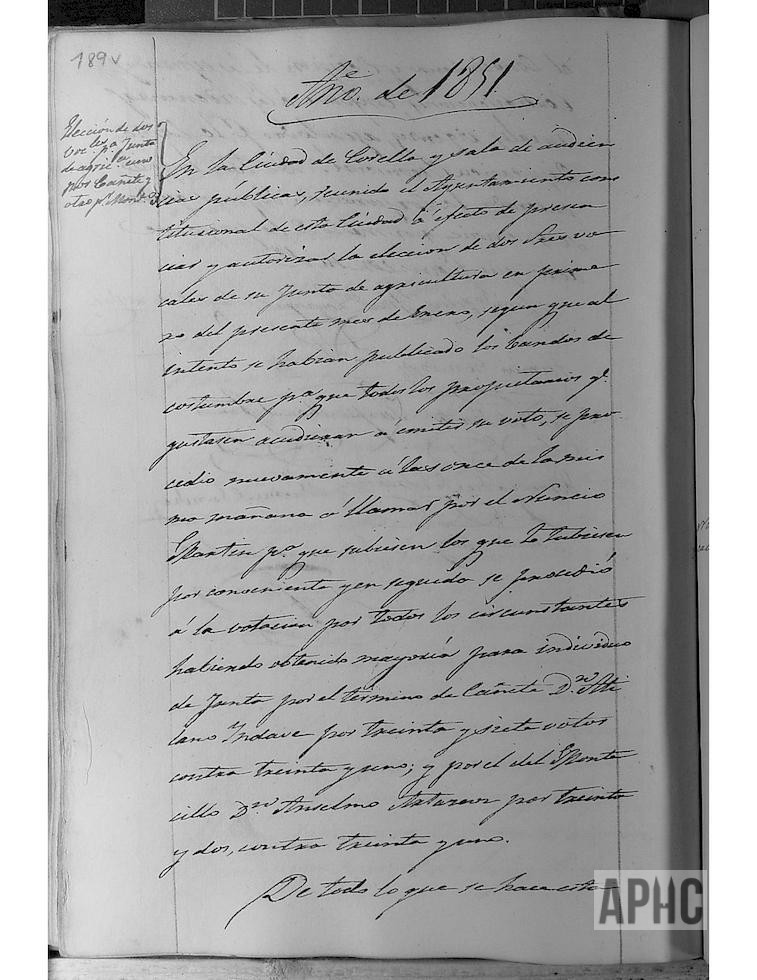 189v
Año. de 1851.
Elección de dos
voc.les p.a Junta
de agric.ra uno
por Cañete y
otro p.r Mont.o
En la Ciudad de Corella y sala de audien
cias públicas, reunido el Ayuntamiento cons
titucional de esta Ciudad á efecto de presen
ciar y autorizar la eleccion de dos Sres vo
cales de su Junta de agricultura en prime
ro del presente mes de Enero, segun que al
intento se habian publicado los bandos de
costumbre p.a que todos los propietarios q.e
gustasen acudieran á emitir su voto, se pro
cedió nuevamente á las once de la mis
ma mañana á llamar por el Nuncio
Martin p.a que subiesen los que lo tubiesen
por conveniente y en seguida se procedió
á la votacion por todos los circunstantes
habiendo obtenido mayoria para individuo
de Junta por el termino de Cañete D.n Ati
lano Yndave por treinta y siete votos
contra treinta y uno; y por el del Monte
cillo D.n Anselmo por treinta
y dos, contra treinta y uno.
De todo lo que se hace esta
APHC